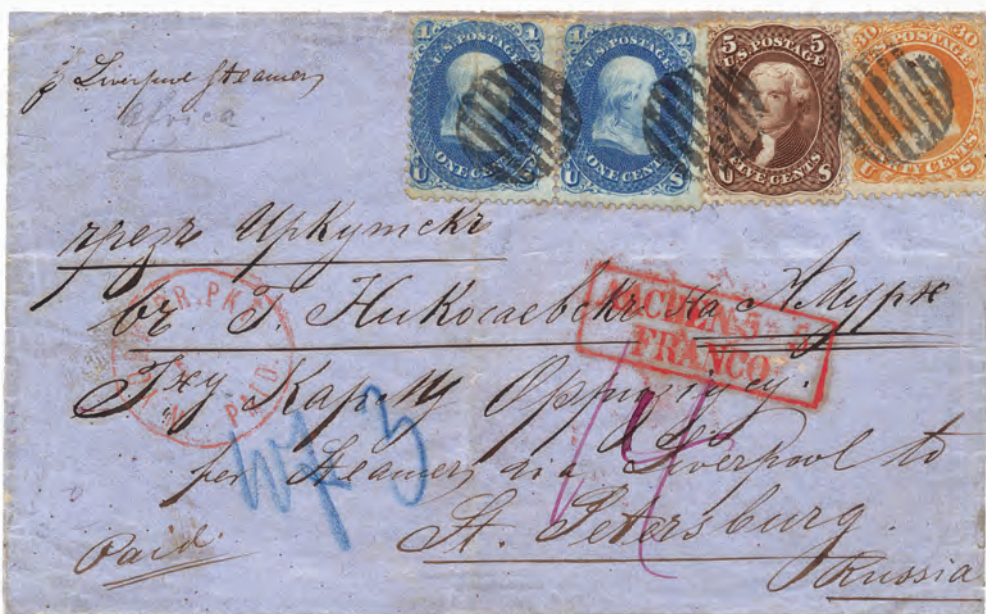 pr Liverpool Steamer
Africa
1 U.S. POSTAGE 1
ONE CENT
U S
1 U.S. POSTAGE 1
ONE CENT
U S
5 U.S. POSTAGE 5
FIVE CENTS
U S
30 U.S. POSTAGE 30
U S
чрезъ Иркутскъ
въ Г. Николаевскъ На Амурѣ
BR. PKT.
PAID.
AACHEN 5 5
FRANCO
Гну Карлу
per Steamer via Liverpool to
St. Petersburg.
Paid.
Russia
wf 3